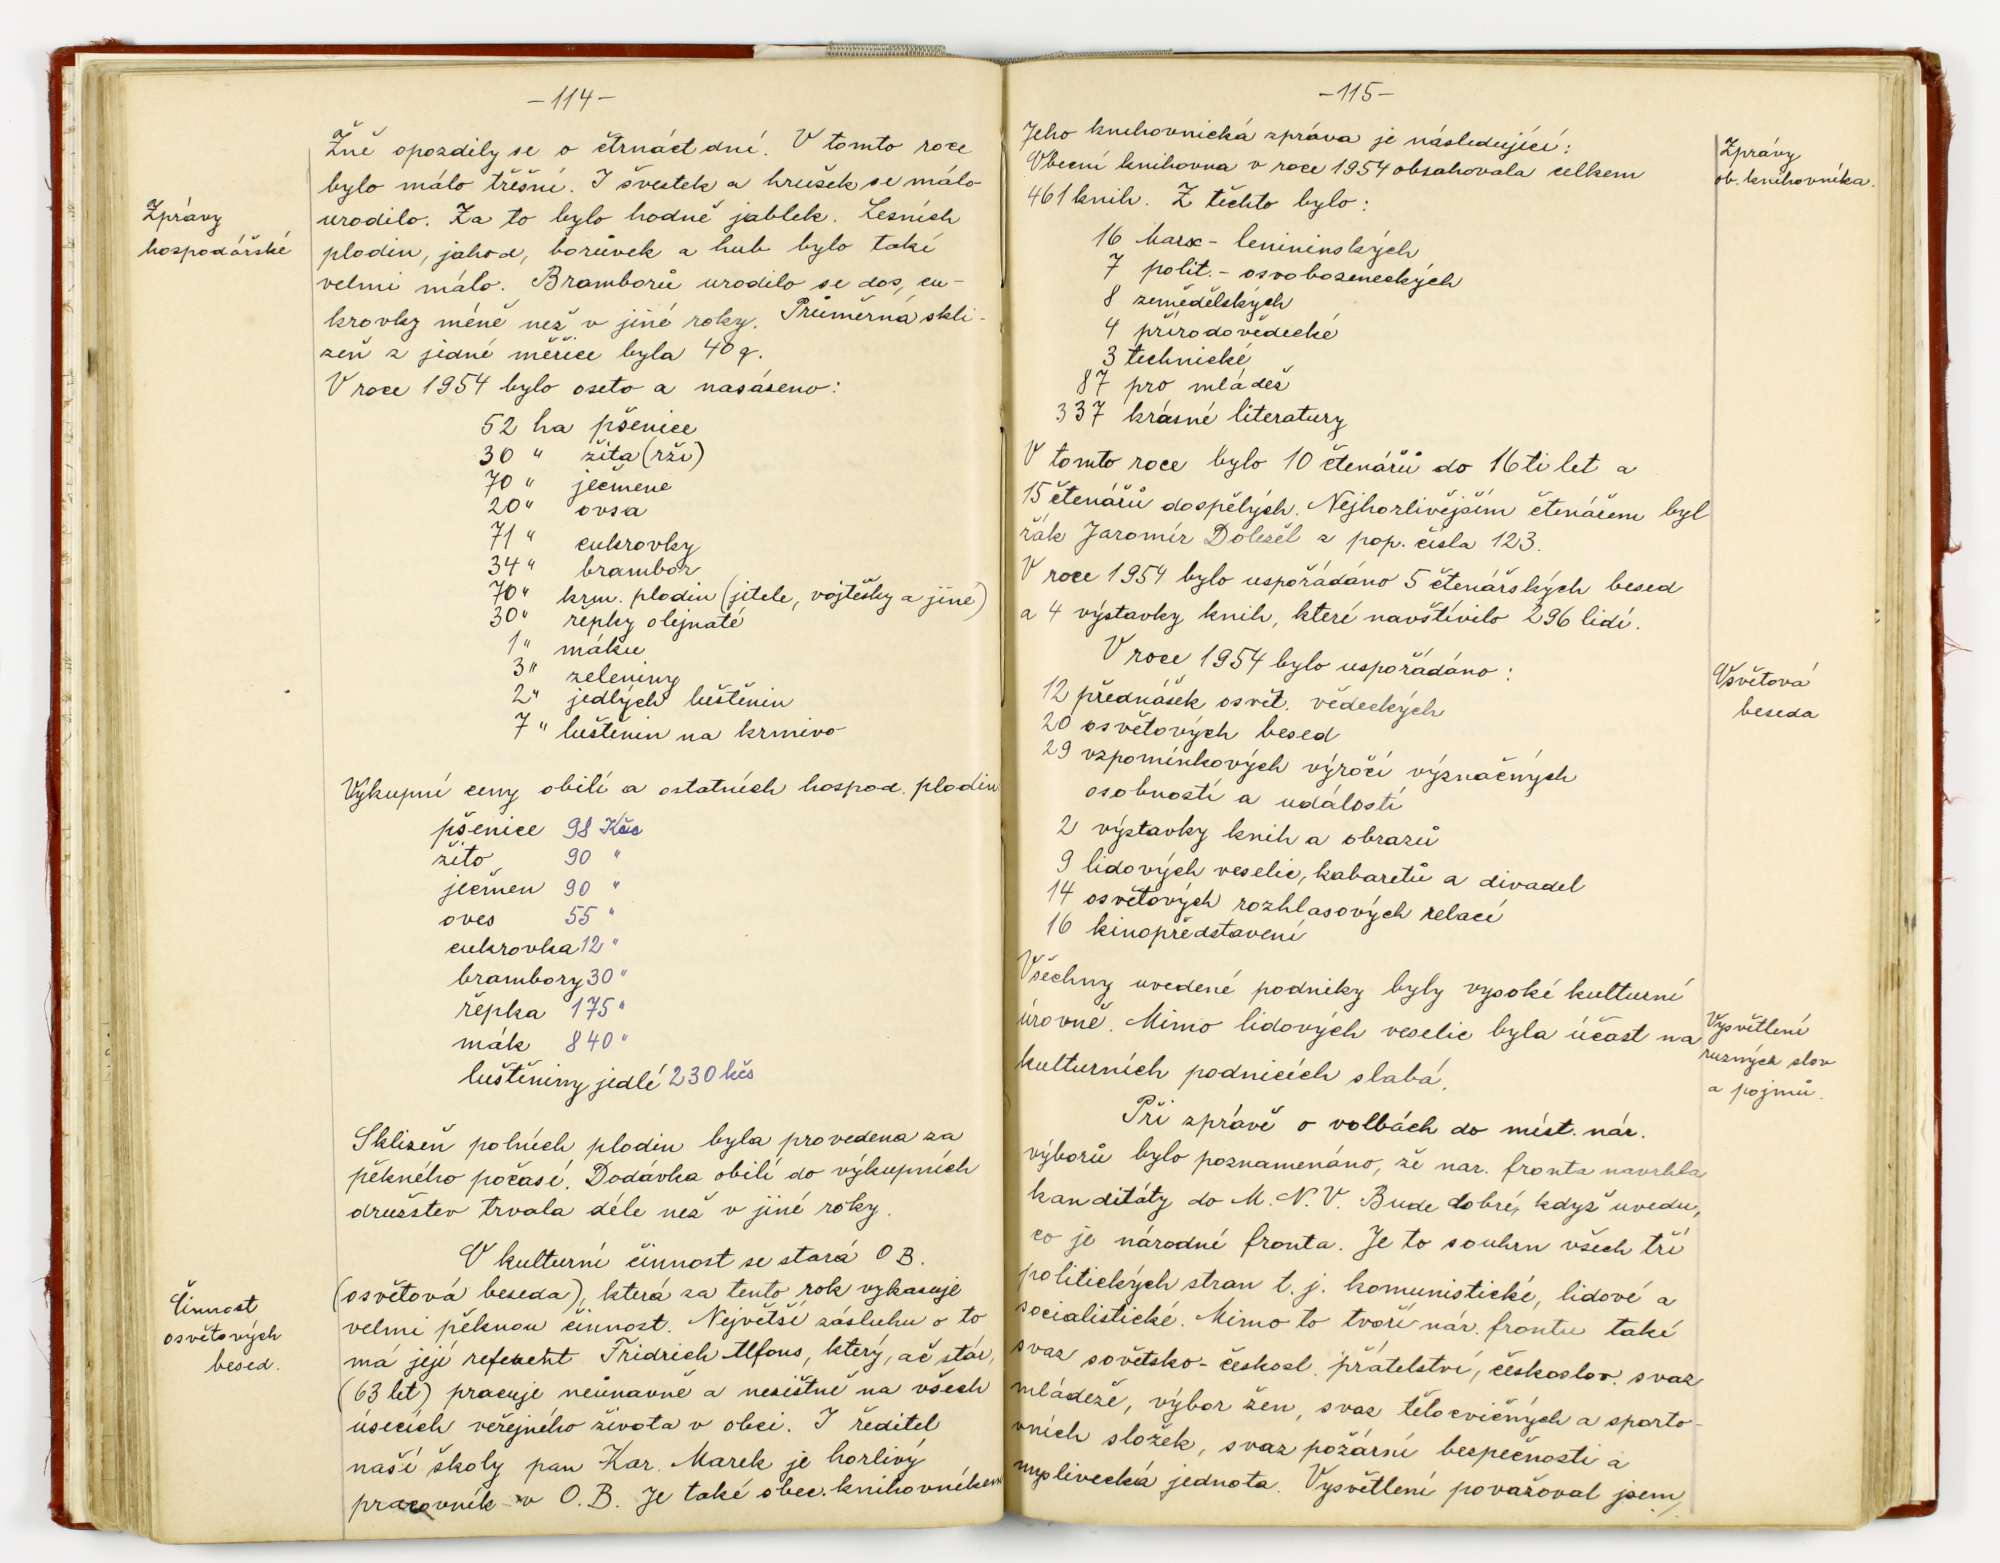 -114-
Žně opozdily se o čtrnáct dní. V tomto roce
bylo málo třešní. I švestek a hrušek se málo
Zprávy
hospodářské
urodilo. Za to bylo hodně jablek. Lesních
plodin, jahod, borůvek a hub bylo také
velmi málo. Bramborů urodilo se dos, cu-
krovky méně než v jiné roky. Průměrná skli-
zeň z jedné měřice byla 40 q.
V roce 1954 bylo oseto a nasázeno:
52 ha pšenice
30 " žita (rži)
70 " ječmene
20 " ovsa
71 " cukrovky
34 " brambor
70 " krm. plodin (jetele, vojtěšky a jiné)
30 " řepky olejnaté
1 " máku
3 " zeleniny
2 " jedlých luštěnin
7 " luštěnin na krmivo
Výkupní ceny obilí a ostatních hospod. plodin
pšenice 98 Kčs
žito 90 "
ječmen 90 "
oves 55 "
cukrovka 12 "
brambory 30 "
řepka 175 "
mák 840 "
luštěniny jedlé 230 kčs
Sklizeň polních plodin byla provedena za
pěkného počasí. Dodávka obilí do výkupních
družstev trvala déle než v jiné roky.
V kulturní činnost se stará O B.
Činnost
osvětových
besed.
(osvětová beseda), která za tento rok vykazuje
velmi pěknou činnost. Největší zásluhu o to
má její referent Fridrich Alfons, který, ač stár,
(63 let) pracuje neúnavně a nezištně na všech
úsecích veřejného života v obci. I ředitel
naší školy pan Kar. Marek je horlivý
pracovník v O. B. Je také obec. knihovníkem
-115-
Jeho knihovnická zpráva je následující:
Zprávy
ob. knihovníka.
Obecní knihovna v roce 1954 obsahovala celkem
461 knih. Z těchto bylo:
16 Marx - lenininských
7 polit. - osvobozeneckých
8 zemědělských
4 přírodovědecké
3 technické
87 pro mládež
337 krásné literatury
V tomto roce bylo 10 čtenářů do 16ti let a
15 čtenářů dospělých. Nejhorlivějším čtenářem byl
žák Jaromír Doležel z pop. čísla 123.
V roce 1954 bylo uspořádáno 5 čtenářských besed
a 4 výstavky knih, které navštívilo 296 lidí.
V roce 1954 bylo uspořádáno:
Osvětová
beseda
12 přednášek osvět. vědeckých
20 osvětových besed
29 vzpomínkových výročí význačných
osobností a událostí
2 výstavky knih a obrazů
9 lidových veselic, kabaretů a divadel
14 osvětových rozhlasových relací
16 kinopředstavení
Všechny uvedené podniky byly vysoké kulturní
úrovně. Mimo lidových veselic byla účast na
kulturních podnicích slabá.
Vysvětlení
ruzných slov
a pojmů.
Při zprávě o volbách do míst. nár.
výborů bylo poznamenáno, že nar. fronta navrhla
kanditáty do M. N. V. Bude dobré, když uvedu,
co je národné fronta. Je to souhrn všech tří
politických stran t. j. komunistické, lidové a
socialistické. Mimo to tvoří nár. frontu také
svaz sovětsko-českosl. přátelství, českoslov. svaz
mládeže, výbor žen, svaz tělocvičných a sporto-
vních složek, svaz požární bezpečnosti a
myslivecká jednota. Vysvětlení považoval jsem